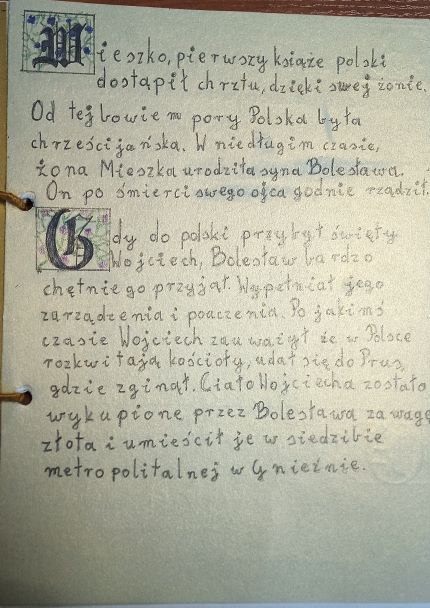 Mieszko, pierwszy książe polski
dostąpił chrztu, dzięki swej żonie.
Od tej bowiem pory Polska była
chrześcijańska. W niedługim czasie,
żona Mieszka urodziła syna Bolesława.
On po śmierci swego ojca godnie rządził.
Gdy do polski przybył święty
Wojciech, Bolesław bardzo
chętnie go przyjął. Wypełniał jego
zarządzenia i pouczenia. Po jakimś
czasie Wojciech zauważył że w Polsce
rozkwitają kościoły, udał się do Prus,
gdzie zginął. Ciało Wojciecha zostało
wykupione przez Bolesława za wagę
złota i umieścił je w siedzibie
metropolitalnej w Gnieźnie.